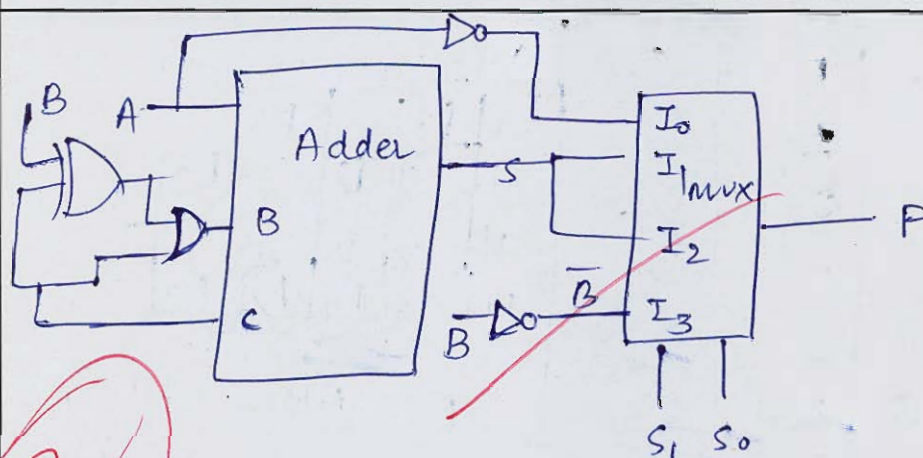 B
A
Adder
B
C
S
I0
I1 mux
I2
I3
B̅
B
F
S1 S0